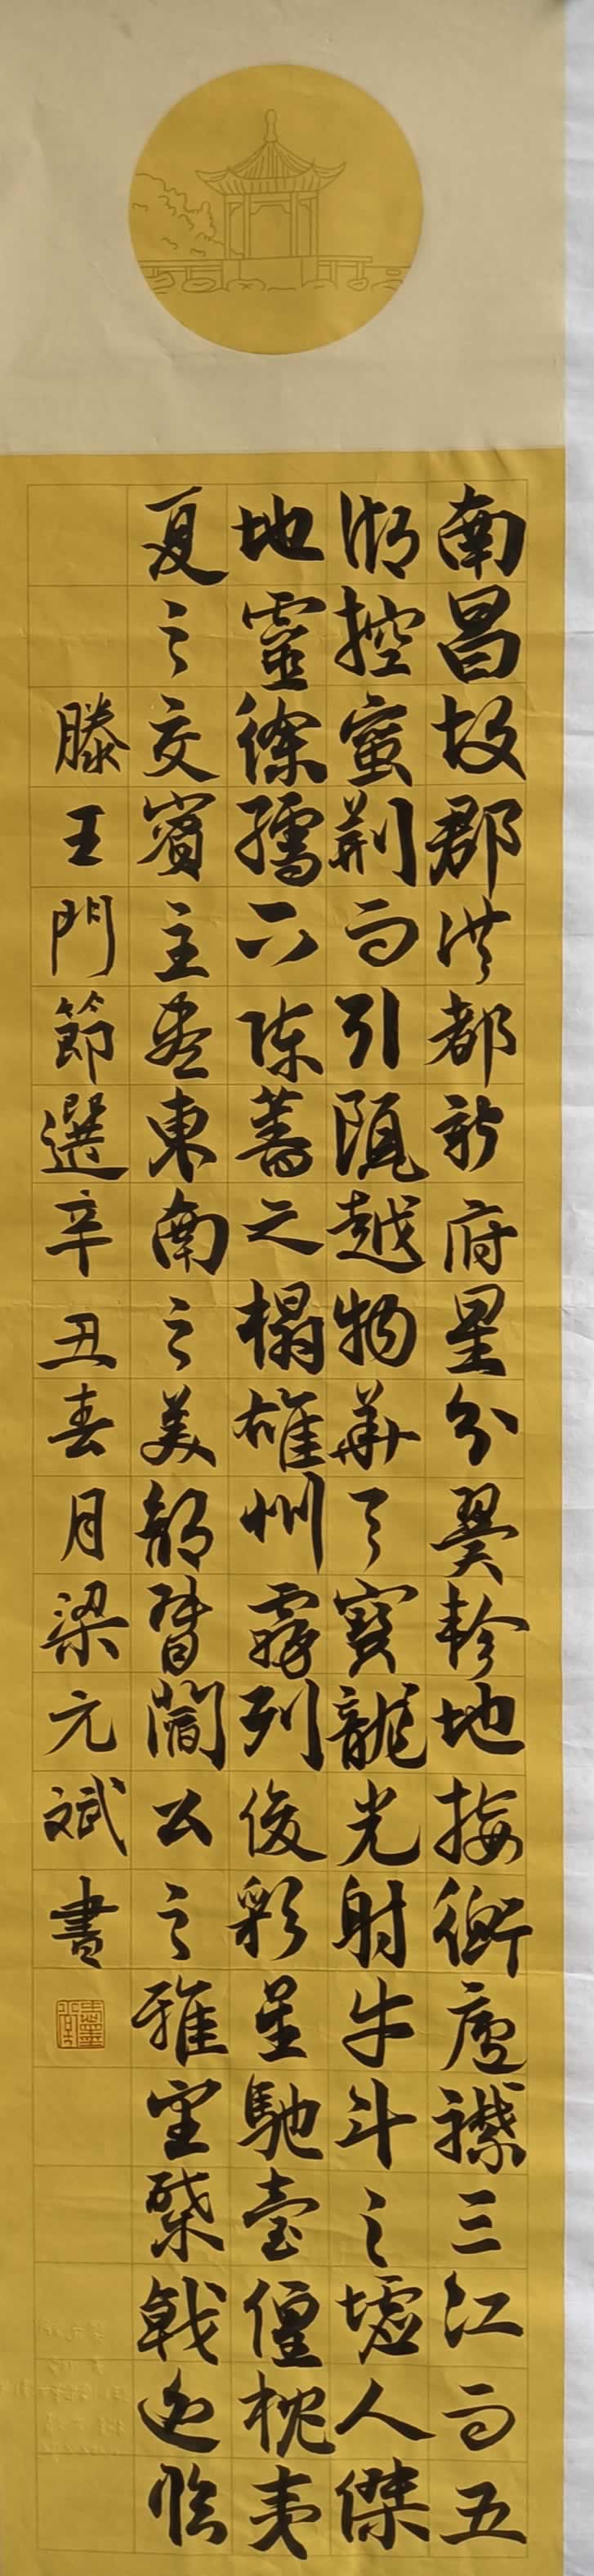 南昌故郡洪都新府星分翼軫地接衡廬襟三江而五
湖控蛮荆而引甌越物華天寶龍光射牛斗之墟人傑
地靈徐孺下陳蕃之榻雄州霧列俊彩星馳臺隍枕夷
夏之交賓主盡東南之美都督閻公之雅望棨戟遥臨
滕王門節選辛丑春月梁元斌書